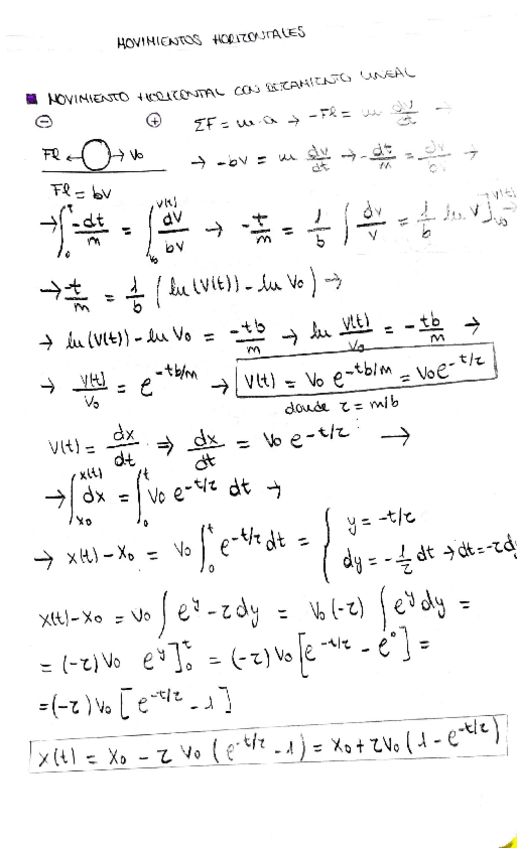 MOVIMIENTOS HORIZONTALES
MOVIMIENTO HORIZONTAL CON ROZAMIENTO LINEAL
⊖ ⊕ ΣF = m·a → -Fℓ = m dv/dt →
Fℓ ← → V₀ → -bv = m dv/dt → -dt/m = dv/bv →
Fℓ = bv
→ ∫₀ᵗ -dt/m = ∫ᵥ₀^v(t) dv/bv → -t/m = 1/b ∫ dv/v = 1/b ln v]ᵥ₀^v(t) →
→ -t/m = 1/b (ln(v(t)) - ln V₀) →
→ ln(v(t)) - ln V₀ = -tb/m → ln v(t)/V₀ = -tb/m →
→ v(t)/V₀ = e^-tb/m → V(t) = V₀ e^-tb/m = V₀e^-t/τ
donde τ = m/b
V(t) = dx/dt ⇒ dx/dt = V₀ e^-t/τ →
→ ∫ₓ₀^x(t) dx = ∫₀ᵗ V₀ e^-t/τ dt →
→ x(t) - x₀ = V₀ ∫₀ᵗ e^-t/τ dt = { y = -t/τ
dy = -1/τ dt → dt = -τdy
x(t) - x₀ = V₀ ∫ e^y -τdy = V₀(-τ) ∫ e^y dy =
= (-τ) V₀ e^y]₀ᵗ = (-τ) V₀ [e^-t/τ - e⁰] =
= (-τ) V₀ [e^-t/τ - 1]
x(t) = x₀ - τ V₀ (e^-t/τ - 1) = x₀ + τV₀ (1 - e^-t/τ)